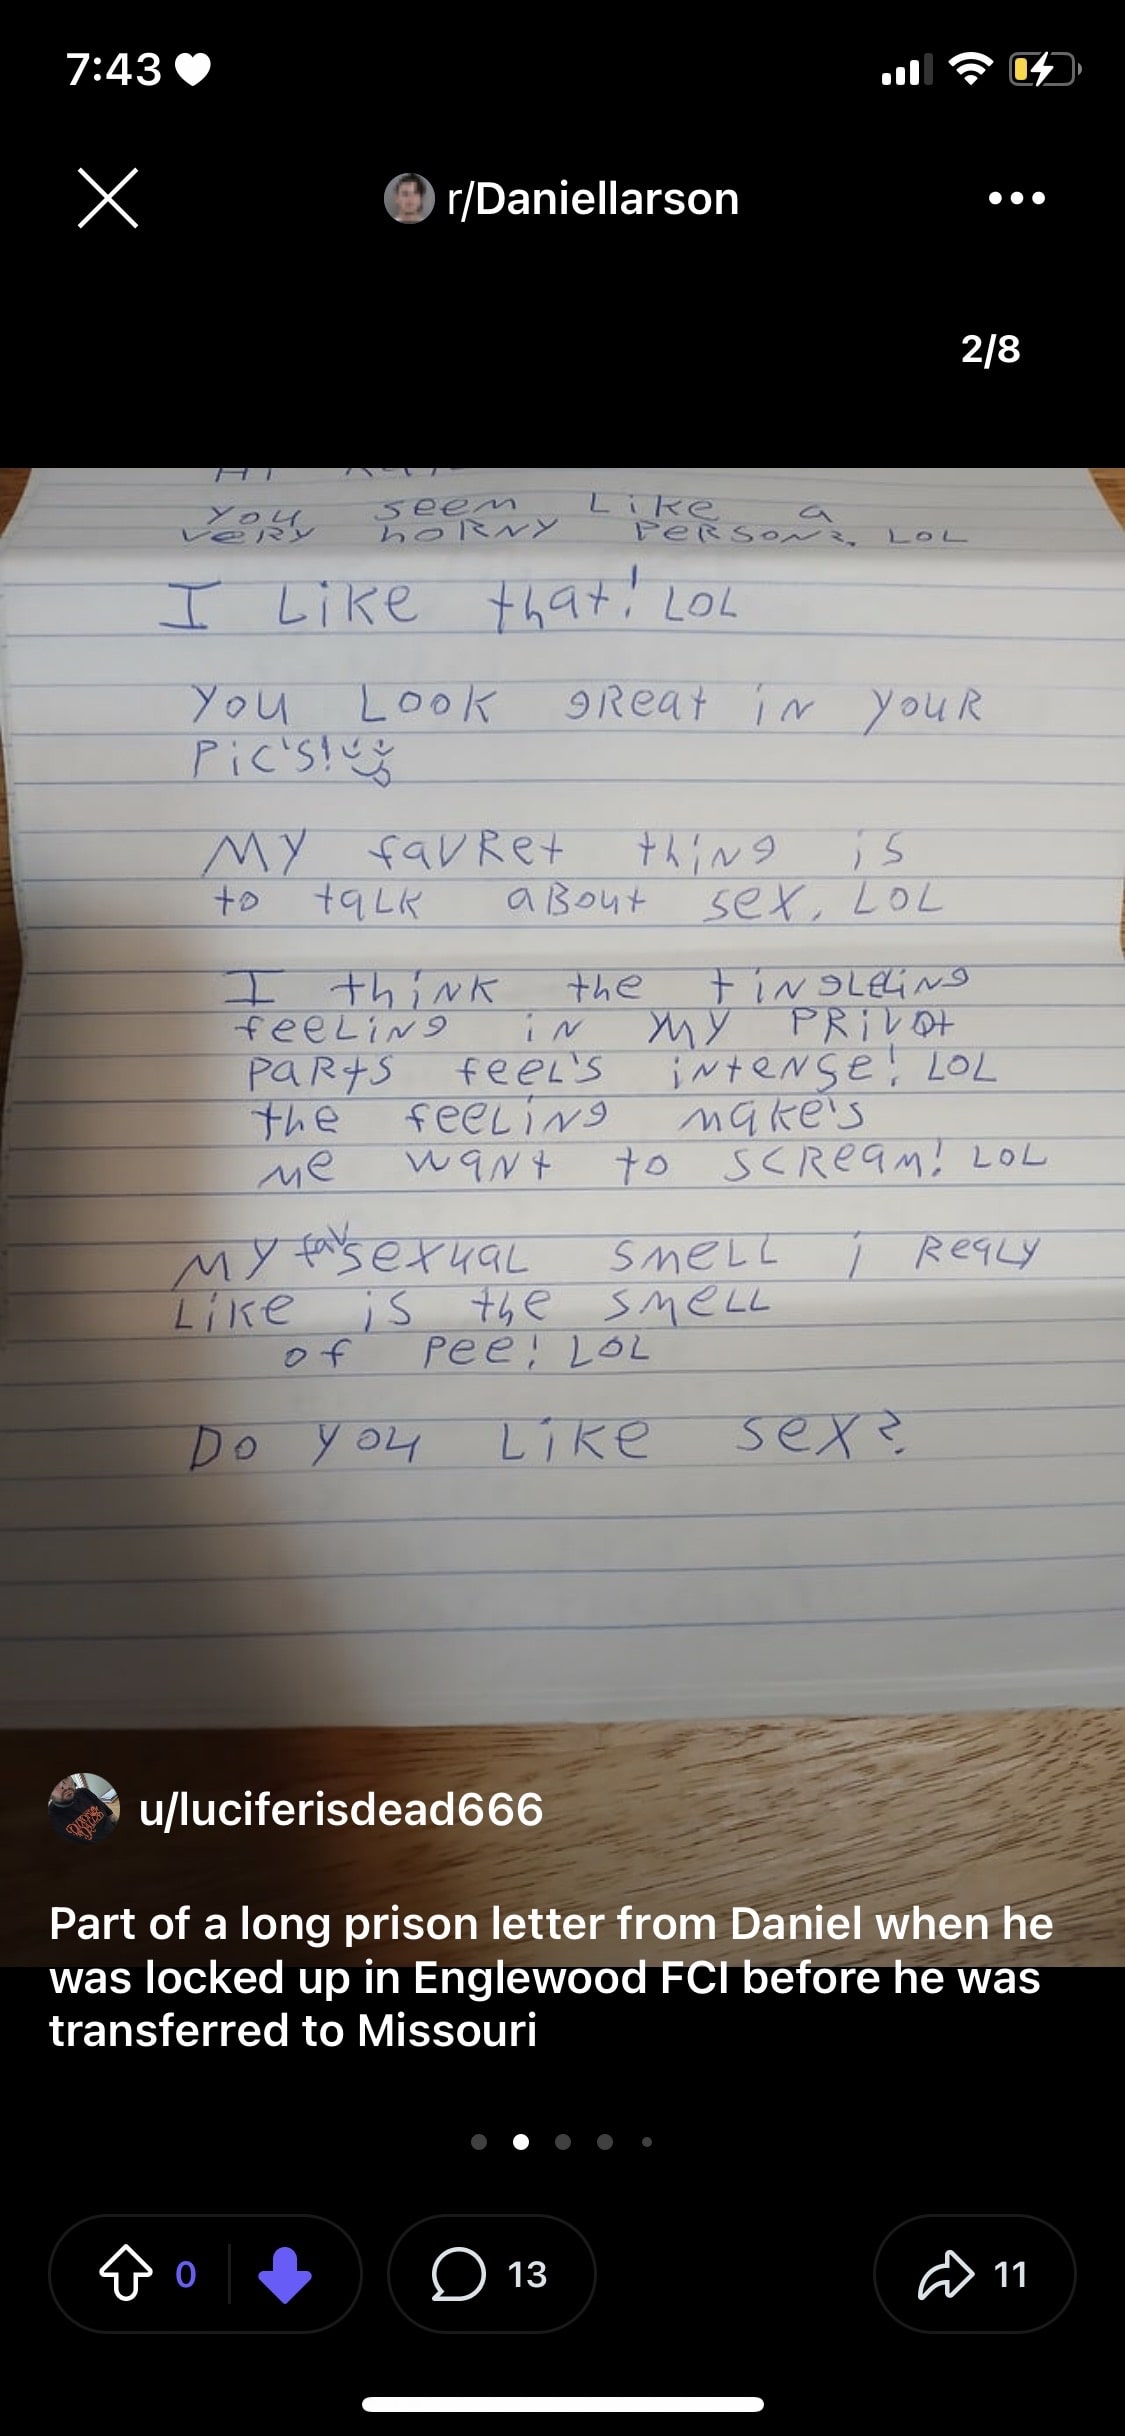 7:43
r/Daniellarson
2/8
You seem Like a
very hORNY PeRSON?. LOL
I Like that! LOL
You Look gReat iN YouR
Pic's!
MY favRet thiNg is
to talk aBout sex, LOL
I thiNK the tiNgLeiNg
feeLiNg iN MY PRivat
PaRts feeL's iNteNse! LOL
the feeLiNg Make's
Me waNt to scReaM! LOL
MY fav sexuaL SMeLL i ReaLy
Like is the sMeLL
of Pee! LOL
Do You Like sex?
u/luciferisdead666
Part of a long prison letter from Daniel when he
was locked up in Englewood FCI before he was
transferred to Missouri
0
13
11